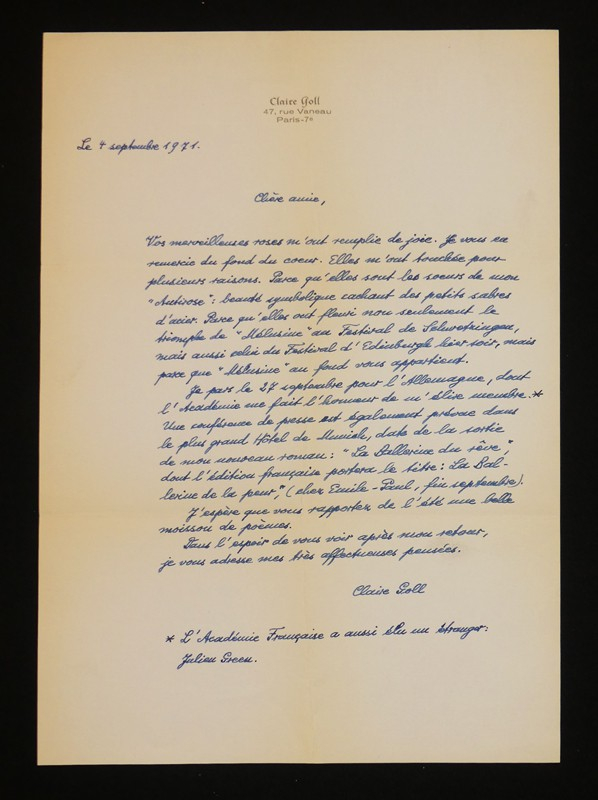 Claire Goll
47, rue Vaneau
Paris-7e
Le 4 septembre 1971.
Chère amie,
Vos merveilleuses roses m'ont remplie de joie. Je vous en
remercie du fond du coeur. Elles m'ont touchée pour
plusieurs raisons. Parce qu'elles sont les soeurs de mon
"Antirose": beauté symbolique cachant des petits sabres
d'acier. Parce qu'elles ont fleuri non seulement le
triomphe de "Mélusine" au Festival de Schwetzingen,
mais aussi celui du Festival d'Edinburgh hier soir, mais
parce que "Mélusine" au fond vous appartient.
Je pars le 27 septembre pour l'Allemagne, dont
l'Académie me fait l'honneur de m'élire membre.*
Une conférence de presse est également prévue dans
le plus grand Hôtel de Munich, date de la sortie
de mon nouveau roman: "La Ballerine du rêve",
dont l'édition française portera le titre: La Bal-
lerine de la peur", (chez Emile-Paul, fin septembre).
J'espère que vous rapportez de l'été une belle
moisson de poèmes.
Dans l'espoir de vous voir après mon retour,
je vous adresse mes très affectueuses pensées.
Claire Goll
* L'Académie Française a aussi élu un étranger:
Julien Green.